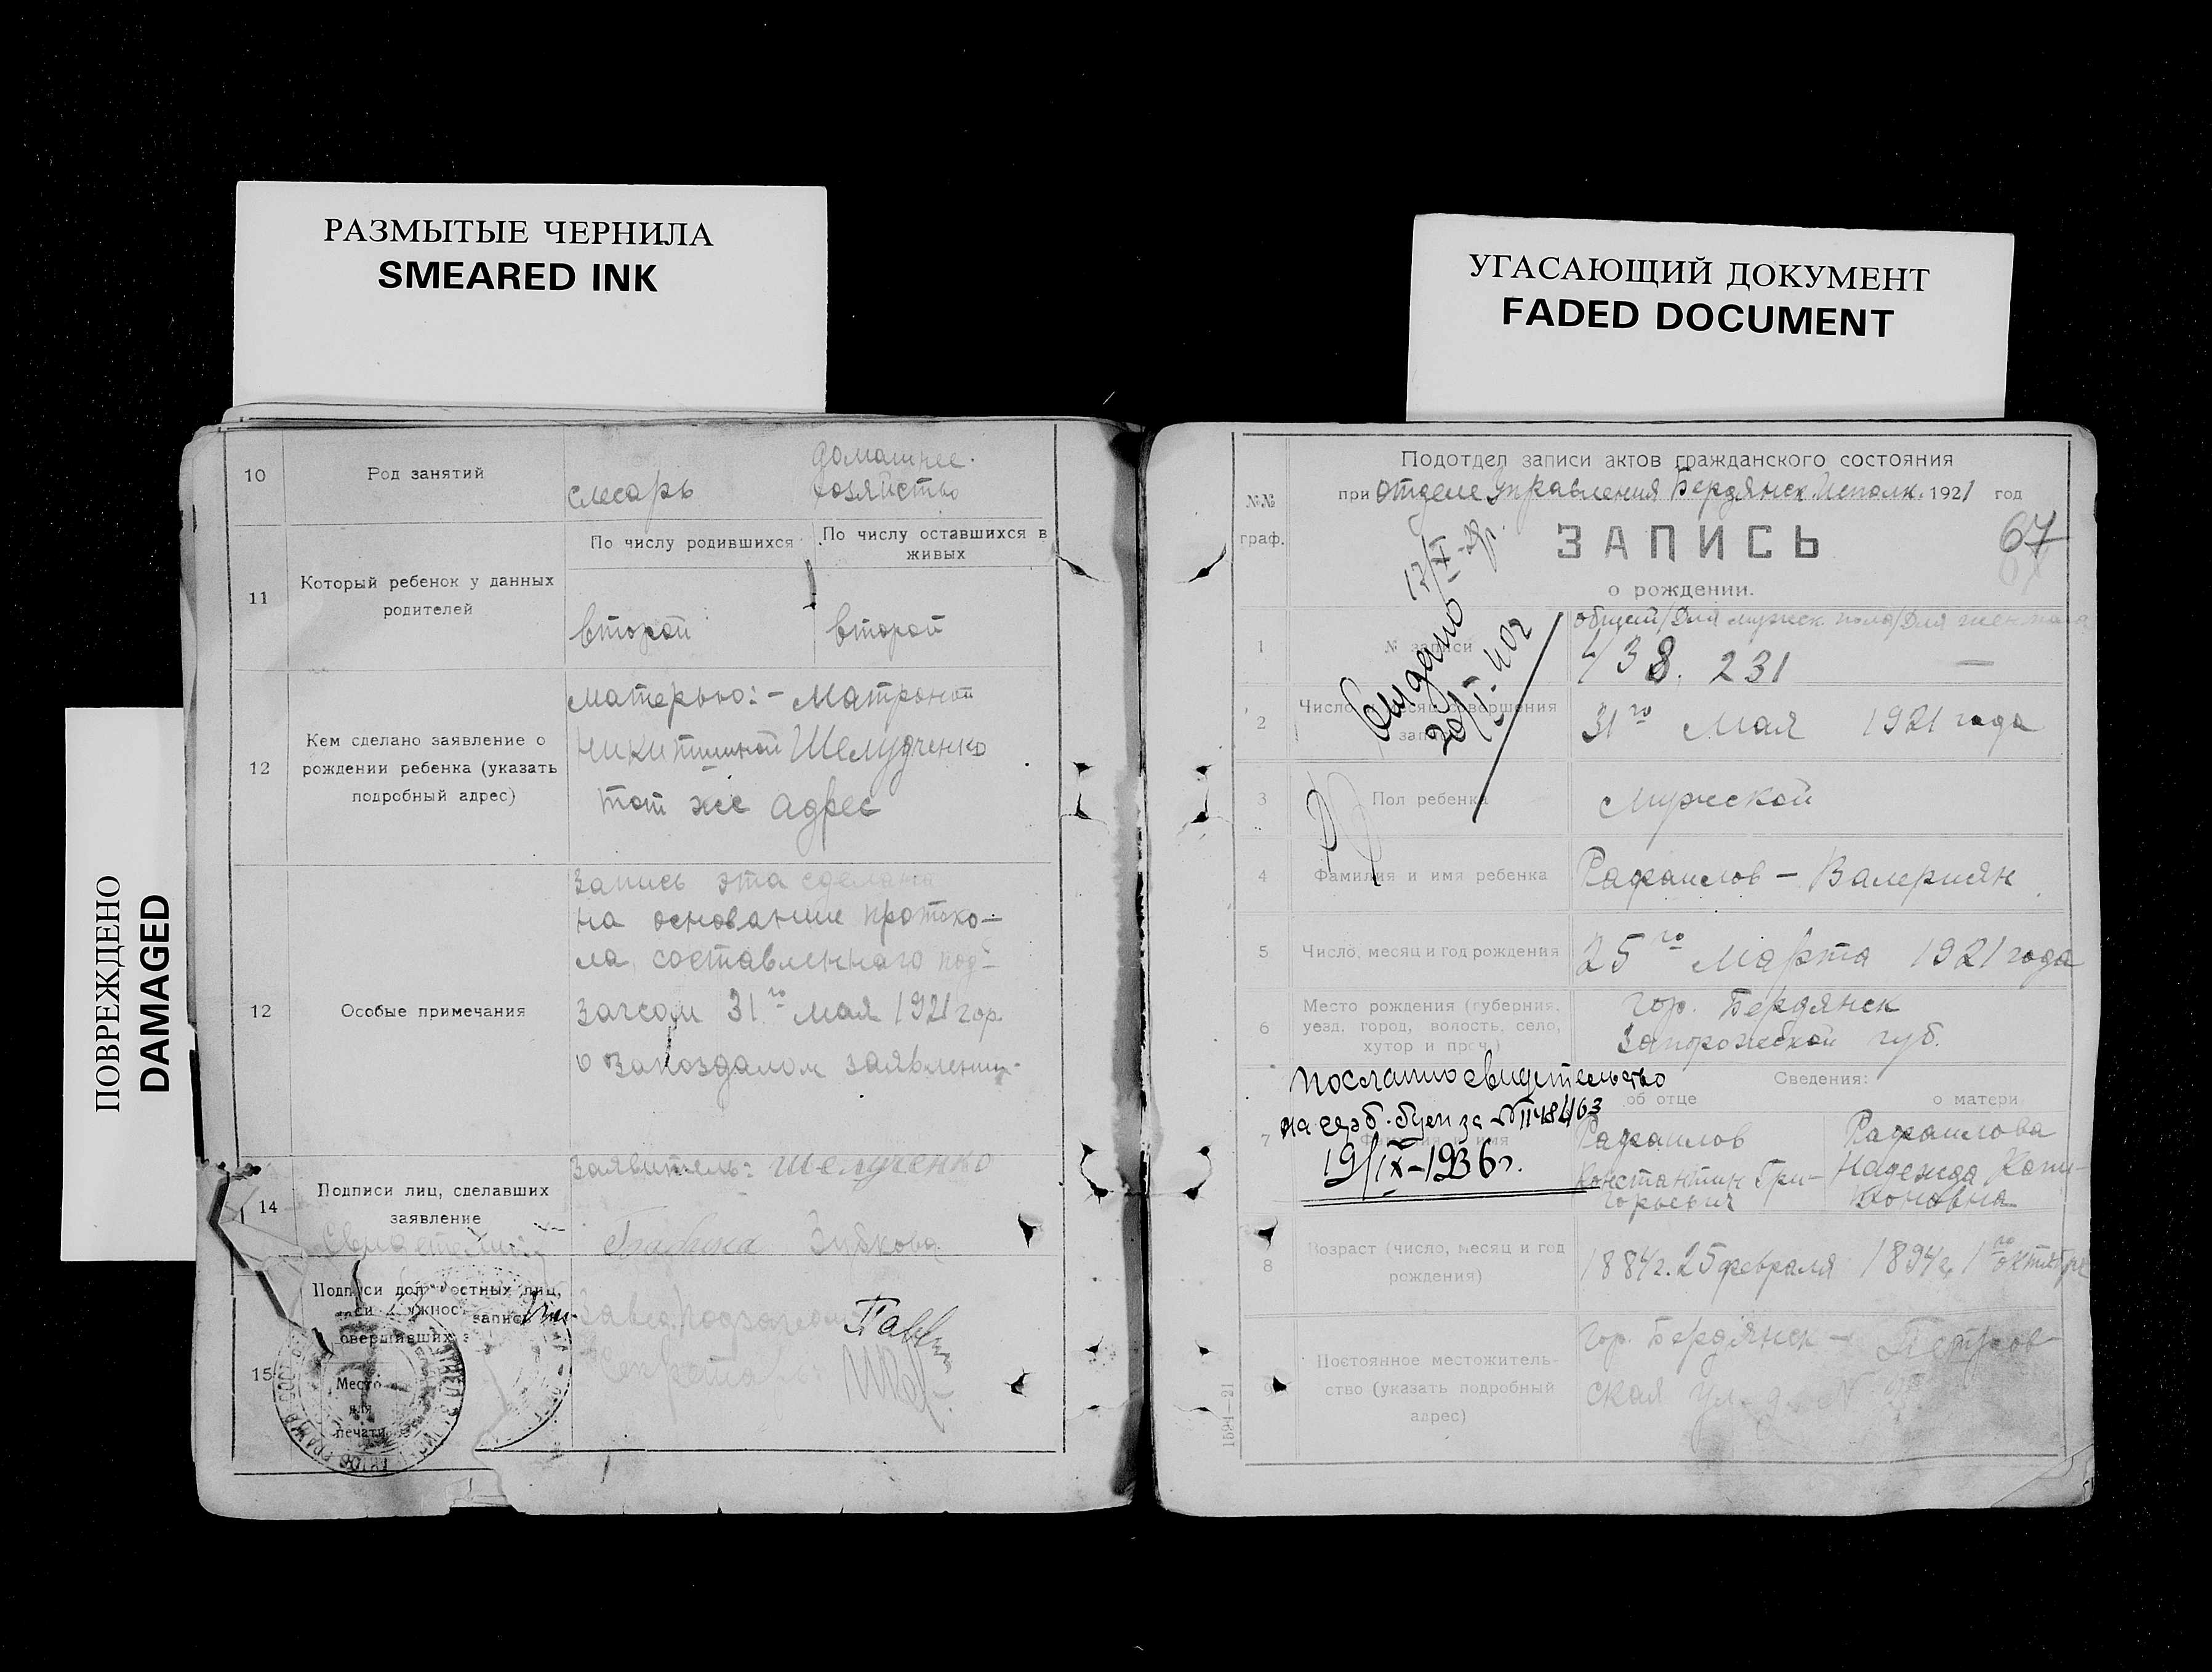 РАЗМЫТЫЕ ЧЕРНИЛА
SMEARED INK
УГАСАЮЩИЙ ДОКУМЕНТ
FADED DOCUMENT
ПОВРЕЖДЕНО
DAMAGED
10
Род занятий
слесарь
домашнее
хозяйство
11
Который ребенок у данных
родителей
По числу родившихся
По числу оставшихся в
живых
второй
второй
12
Кем сделано заявление о
рождении ребенка (указать
подробный адрес)
матерью:- Матроной
Никитишной Шелудченко
тот же адрес
12
Особые примечания
Запись эта сделана
на основание протоко-
ла, составленнаго под-
загсом 31го мая 1921 гор.
о запоздалом заявлении.
14
Подписи лиц, сделавших
заявление
Заявитель: Шелудченко
Свидетели
Зубкова
15
Подписи должностных лиц,
совершивших запись
Место
для
печати
Завед. подзагсом
Секретарь
Подотдел записи актов гражданского состояния
№№
граф.
при отделе Управления Бердянск. Исполк. 1921 год
ЗАПИСЬ
67
о рождении.
Выдано
1
№ записи
общей/Для мужск. пола/Для жен. пола
438. 231 —
2
Число, месяц совершения
записи
31го Мая 1921 года
3
Пол ребенка
Мужской
4
Фамилия и имя ребенка
Рафаилов - Валериян
5
Число, месяц и год рождения
25го Марта 1921 года
6
Место рождения (губерния,
уезд, город, волость, село,
хутор и проч.)
гор. Бердянск
Запорожской губ.
Послано свидетельство
19/IX-1936г.
Сведения:
об отце
о матери
7
Фамилия и имя
Рафаилов
Константин Гри-
горьевич
Рафаилова
Надежда Капи-
тоновна
8
Возраст (число, месяц и год
рождения)
1884г. 25 февраля
1894г. 1го октября
9
Постоянное местожитель-
ство (указать подробный
адрес)
гор. Бердянск - Петров-
ская ул. д. №
1594—21